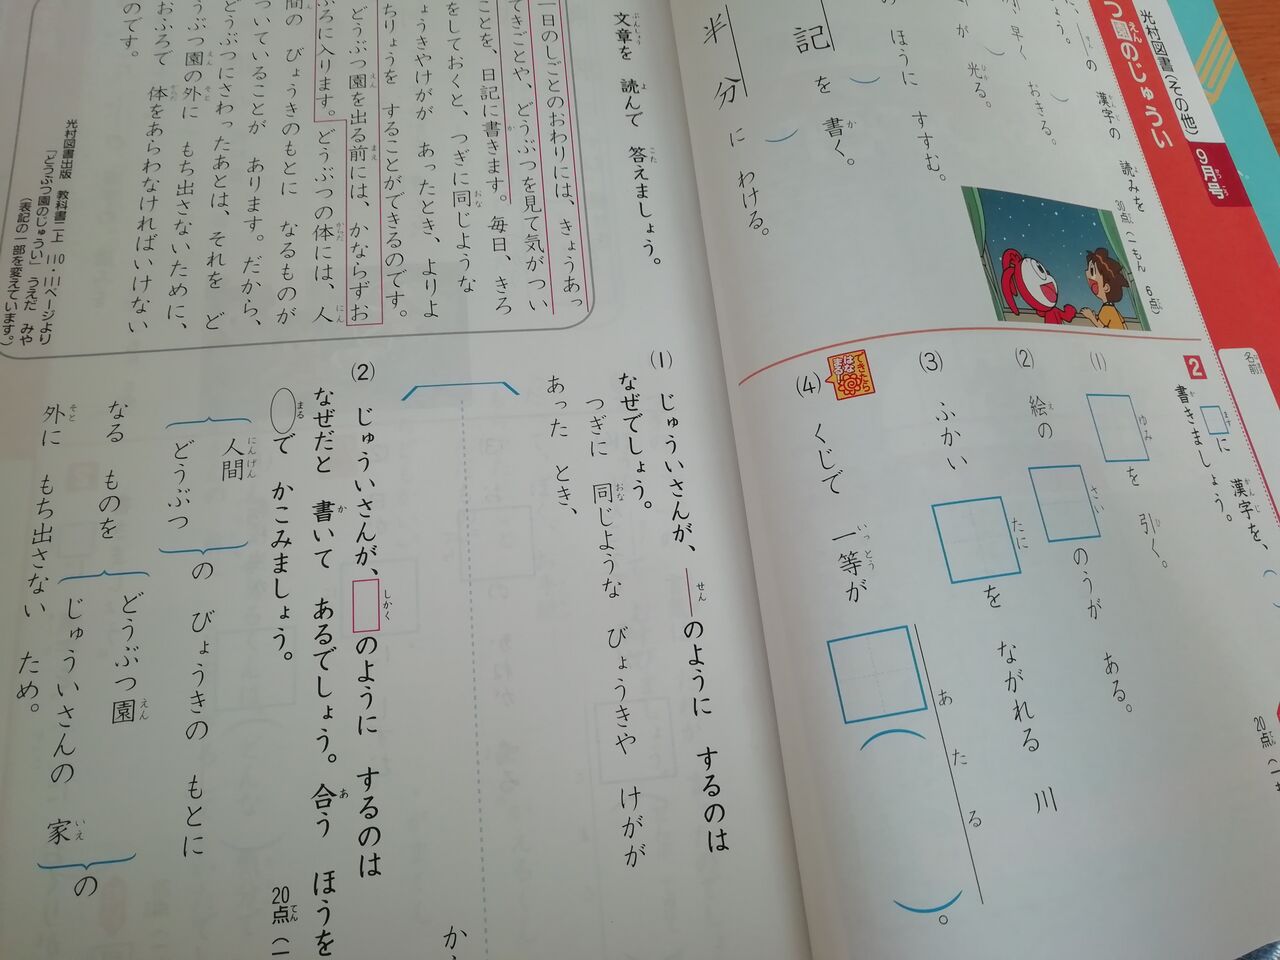 光村図書(その他)
9月号
つ園のじゅうい
の 漢字の 読みを
30点(一もん 6点)
早く おきる。
が 光る。
ほうに すすむ。
記を 書く。
半分に わける。
名前
2 □に 漢字を、
書きましょう。
20点(一
(1) □を 引く。
ゆみ
(2) 絵の □のうが ある。
さい
(3) ふかい □を ながれる 川
たに
できたら はなまる!
(4) くじで 一等が □( )。
あたる
文章を 読んで 答えましょう。
一日のしごとのおわりには、きょうあっ
てきごとや、どうぶつを見て気がつい
ことを、日記に書きます。毎日、きろ
をしておくと、つぎに同じような
ょうきやけがが あったとき、よりよ
ちりょうを することができるのです。
どうぶつ園を出る前には、かならずお
ふろに入ります。どうぶつの体には、人
間の びょうきのもとに なるものが
ついていることが あります。だから、
どうぶつにさわったあとは、それを ど
うぶつ園の外に もち出さないために、
おふろで 体をあらわなければいけない
のです。
光村図書出版 教科書二上 110・111ページより
「どうぶつ園のじゅうい」 うえだ みや
(表記の一部を変えています。)
(1) じゅういさんが、―のように するのは
せん
なぜでしょう。
つぎに 同じような びょうきや けがが
あった とき、
か
(2) じゅういさんが、□のように するのは
しかく
なぜだと 書いて あるでしょう。合う ほうを
○で かこみましょう。
まる
20点(一
人間
どうぶつ
の びょうきの もとに
なる ものを
どうぶつ園
じゅういさんの 家
の
外に もち出さない ため。